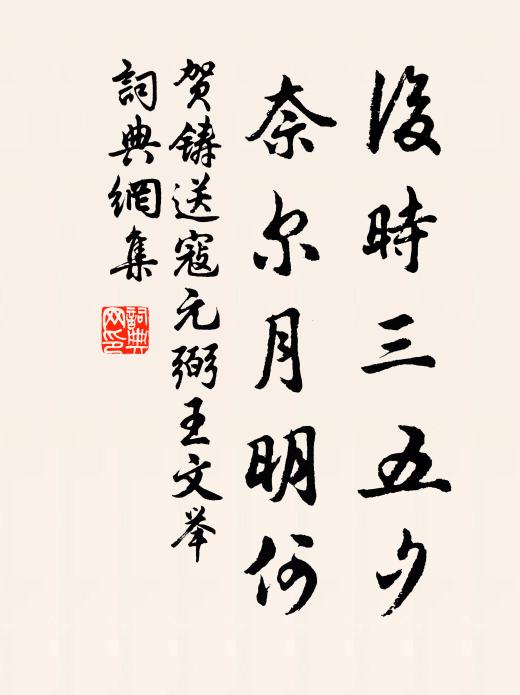 後時三五夕
奈尔月明何
贺鑄送寇元弼王文举
詞典網集
詞典
网印